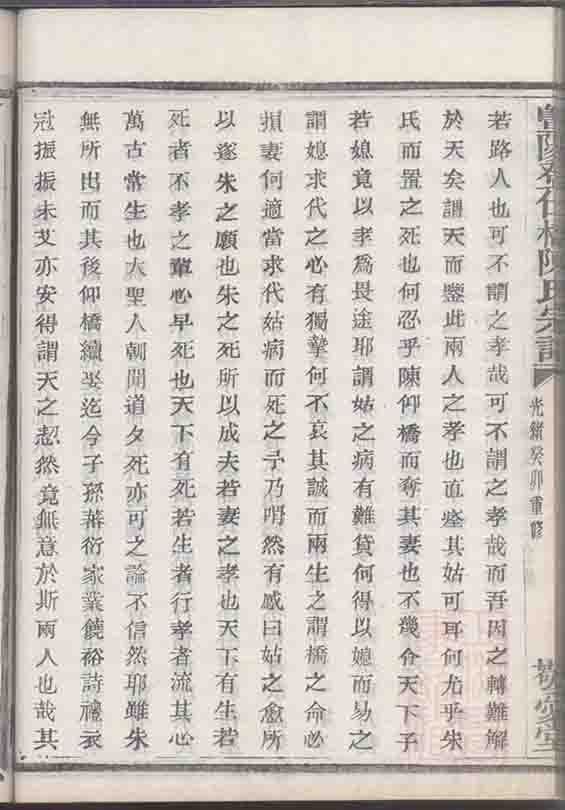 陵 在橋陳氏宗譜
光緒癸卯重修
敬愛堂
若路人也可不謂之孝哉可不謂之孝哉而吾因之轉難解
於天矣謂天而鑒此兩人之孝也直瘥其姑可耳何尤乎朱
氏而置之死也何忍乎陳仰橋而奪其妻也不幾令天下子
若媳竟以孝為畏途耶謂姑之病有難貸何得以媳而易之
謂媳求代之心有獨摯何不哀其誠而兩生之謂橋之命必
損妻何適當求代姑病而死之予乃喟然有感曰姑之愈所
以遂朱之願也朱之死所以成夫若妻之孝也天下有生若
死者不孝之輩心早死也天下有死若生者行孝者流其心
萬古常生也大聖人朝聞道夕死亦可之論不信然耶雖朱
無所出而其後仰橋續娶迄今子孫蕃衍家業饒裕詩禮衣
冠振振未艾亦安得謂天之恝然竟無意於斯兩人也哉其